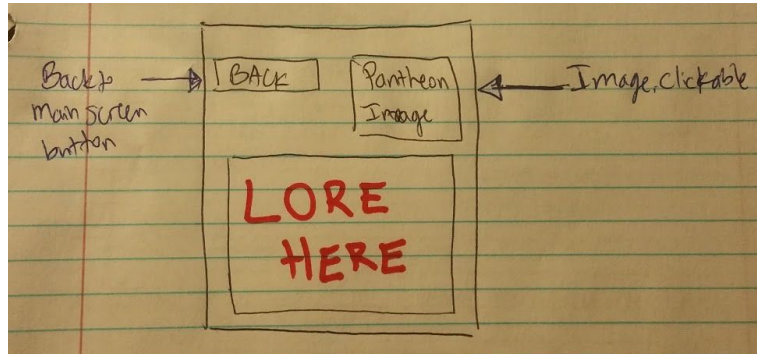 Back to
main screen
button
BACK
Pantheon
Image
Image, clickable
LORE
HERE